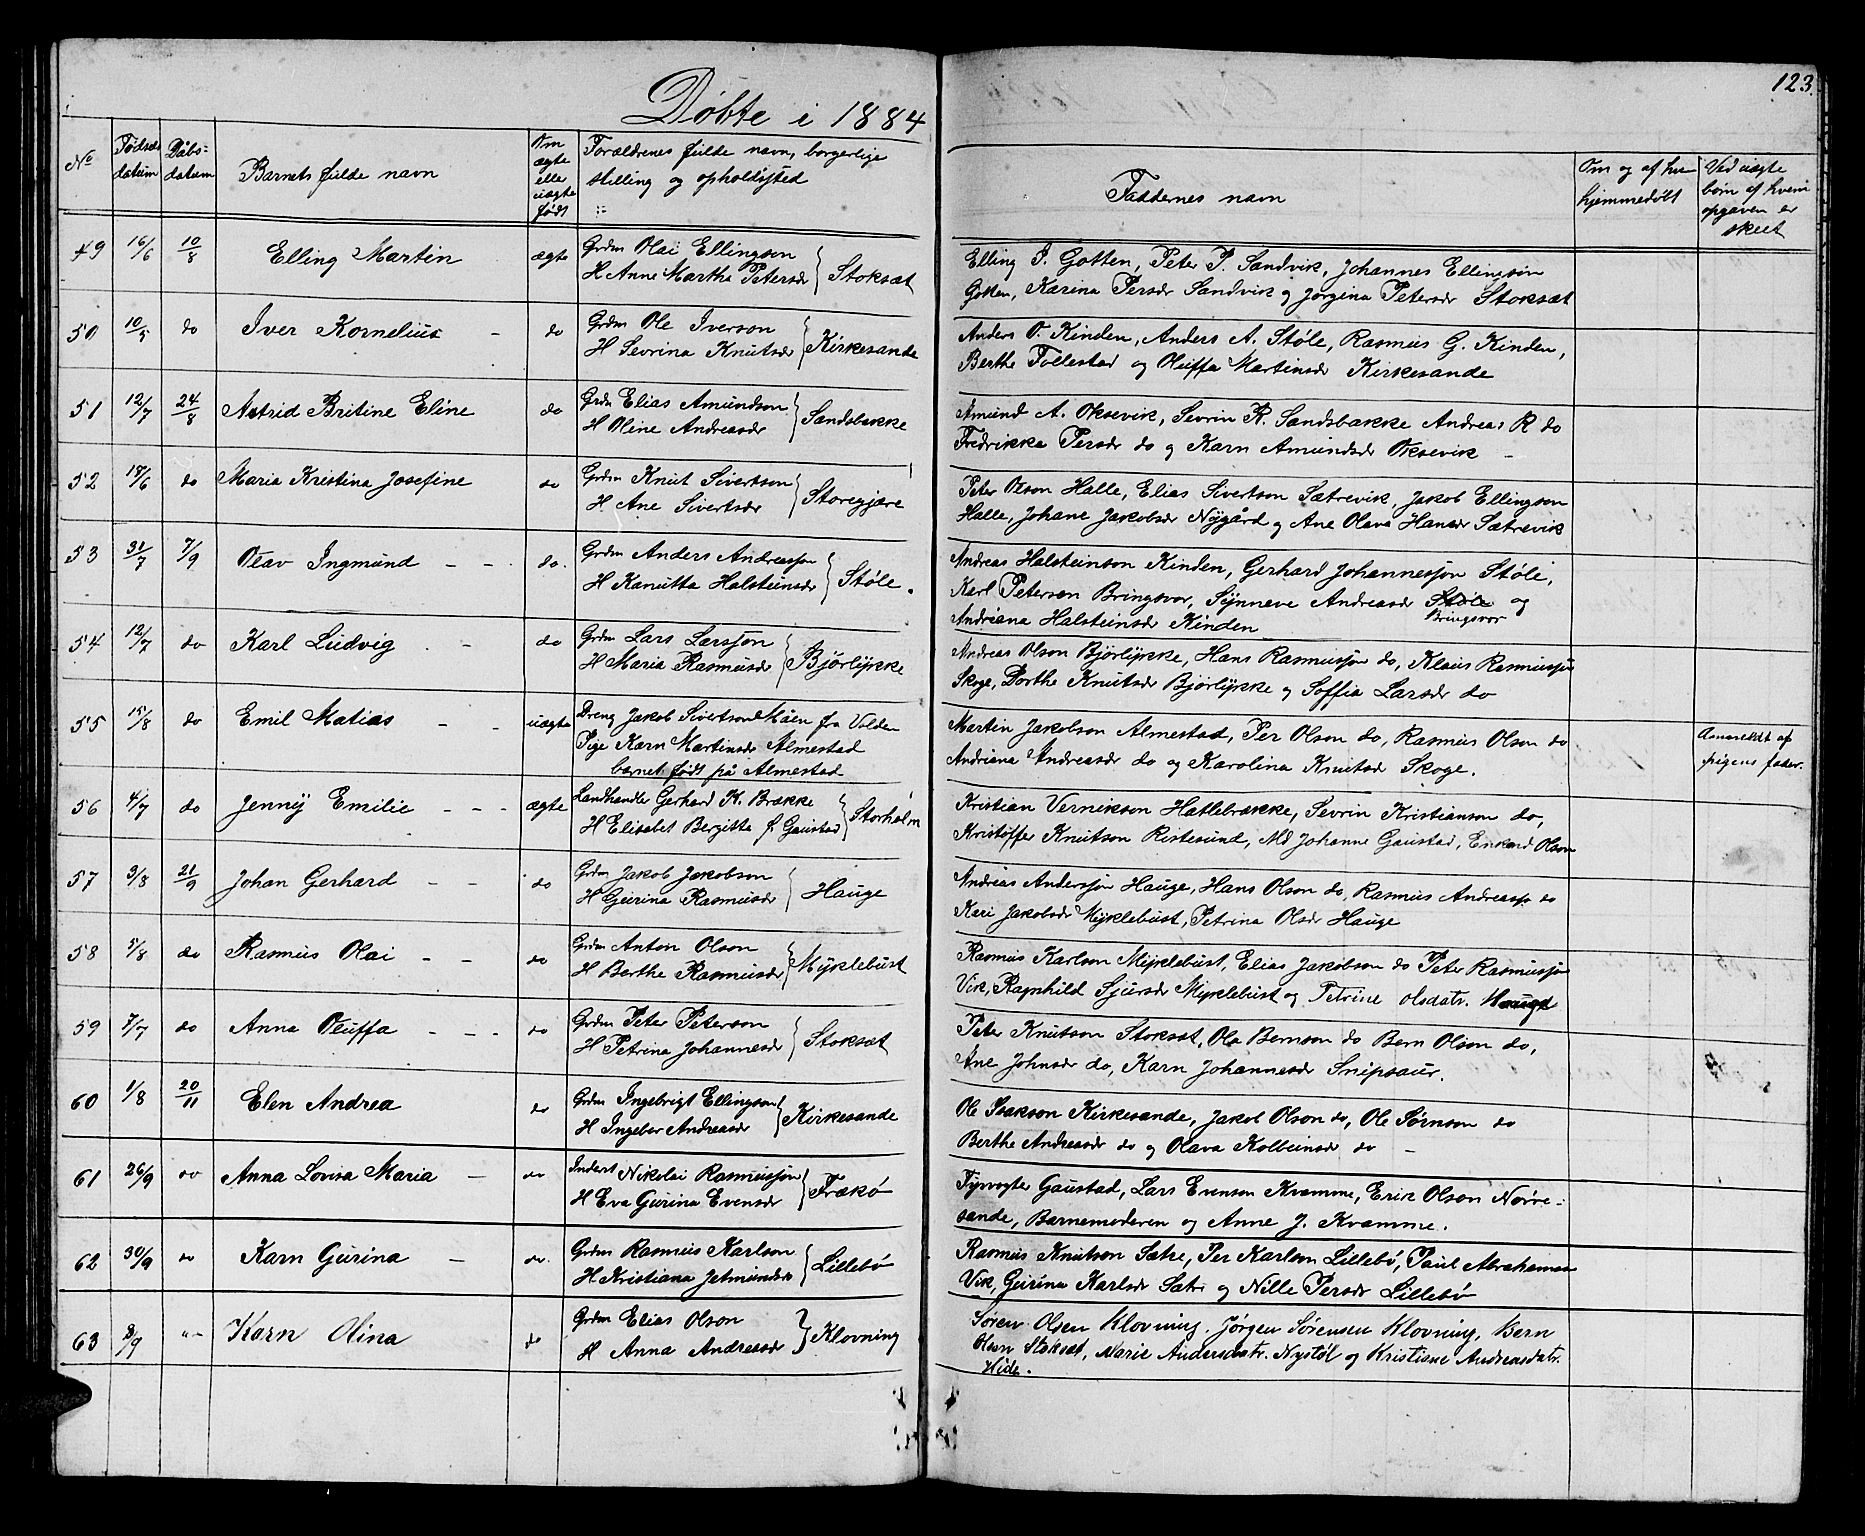 Døbte i 1884
123.
No
Fødsels
datum
Dåbs-
datum
Barnets fulde navn
Om
ægte
eller
uægte
født
Forældrenes fulde navn, borgerlige
stilling og opholdssted
Faddernes navn
Om og af hv
hjemmedøbt
Ved uægte
børn af hvem
opgaven er
skeet
49 16/6 10/8 Elling Martin ægte Grdm Olai Ellingson
H Anne Marthe Petersdr } Stoksæt
Elling I. Gotten, Peter P. Sandvik, Johannes Ellingson
Gotten, Karina Persdr Sandvik og Jørgina Petersdr Stoksæt
50 10/5 do Iver Kornelius - do Grdm Ole Iverson
H Sevrina Knutsdr } Kirkesande
Anders O. Kinden, Anders A. Støle, Rasmus G. Kinden,
Berthe Follestad og Oluffa Martinsdr Kirkesande
51 12/7 24/8 Astrid Britine Eline do Grdm Elias Amundson
H Oline Andreasdr } Sandsbakke
Amund A. Oksevik, Sevrin R. Sandsbakke Andreas R do
Fredrikke Persdr do og Karn Amundsdr Oksevik -
52 18/6 do Maria Kristina Josefine do Grdm Knut Sivertson
H Ane Sivertsdr } Storegjære
Peter Olson Halle, Elias Sivertson Sætrevik, Jakob Ellingson
Halle, Johane Jakobsdr Nygård og Ane Olava Hansdr Sætrevik
53 31/7 7/9 Olav Ingmund - - do. Grdm Anders Andreasson
H Kanutta Halsteinsdr } Støle.
Andreas Halsteinson Kinden, Gerhard Johannesson Støle,
Karl Peterson Bringsvor, Synneve Andreasdr Støle og
Bringsvor
Andriana Halsteinsdr Kinden
54 12/7 do Karl Ludvig - do Grdm Lars Larsson
H Maria Rasmusdr } Bjørlykke
Andreas Olson Bjørlykke, Hans Rasmusson do, Klaus Rasmusson
Skoge, Dorthe Knutsdr Bjørlykke og Soffia Larsdr do
55 15/8 do Emil Matias - - uægte Dreng Jakob Sivertson Måen fra Volden
Pige Karn Martinsdr Almestad
barnet født på Almestad
Martin Jakobson Almestad, Per Olson do, Rasmus Olson do
Andriana Andreasdr do og Karolina Knutsdr Skoge.
Anmeldt af
pigens fader.
56 4/7 do Jenny Emilie - - - ægte Landhandler Gerhard K. Brække
H Elisabet Bergitte f. Gaustad } Storholm
Kristian Vernikson Hatlebrække, Sevrin Kristianson do,
Kristoffer Knutson Ristesund, Md Johanne Gaustad, Enkemd Olson
57 3/8 21/9 Johan Gerhard - - do Grdm Jakob Jakobson
H Gurina Rasmusdr } Hauge
Andreas Andersson Hauge, Hans Olson do, Rasmus Andreasso do
Kari Jakobsdr Myklebust, Petrina Olsdr Hauge
58 5/8 do Rasmus Olai - - do Grdm Anton Olson
H Berthe Rasmusdr } Myklebust
Rasmus Karlson Myklebust, Elias Jakobson do Peter Rasmusson
Vik, Ragnhild Sjursdr Myklebust og Petrine Olsdatr. Hauge
59 7/7 do Anna Oluffa - - - do Grdm Peter Peterson
H Petrina Johannesdr } Stoksæt
Peter Knutson Stoksæt, Ole Bernson do Bern Olson do,
Ane Johnsdr do, Karn Johannesdr Snipsøir.
60 1/8 20/11 Elen Andrea do Grdm Ingebrigt Ellingson
H Ingebor Andreasdr } Kirkesande
Ole Isakson Kirkesande, Jakob Olson do, Ole Sørnson do
Berthe Andreasdr do og Olava Kolbeinsdr do -
61 26/9 do Anna Lovisa Maria - do Inderst Nikolai Rasmusson
H Eva Gurina Evensdr } Frækø
Fyrvogter Gaustad, Lars Evenson Kvamme, Erik Olson Nørve-
sande, Barnemoderen og Anne J. Kvamme.
62 30/9 do Karn Gurina - do. Grdm Rasmus Karlson
H Kristiana Jetmundsdr } Lillebø
Rasmus Knutson Sætre, Per Karlson Lillebø, Paul Abrahamson
Vik, Gurina Karlsdr Sætre og Nille Persdr Lillebø
63 8/9 "- Karn Olina do Grdm Elias Olson
H Anna Andreasdr } Klovning
Søren Olsen Klovning, Jørgen Sørensen Klovning, Bern
Olsen Stoksæt, Marie Andersdatr. Nystøl og Kristiane Andreasdatr.
Hide.